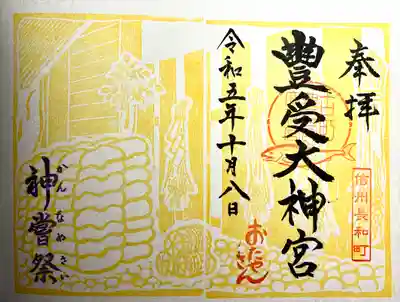 奉拝
信州長和町
豊受大神宮
おたやさん
令和五年十月八日
神嘗祭
かんなめさい